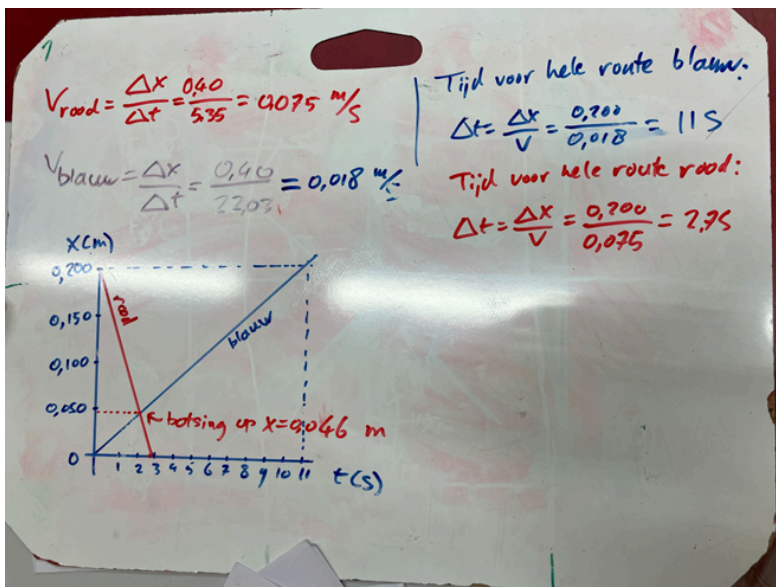 V rood = Δx/Δt = 0,40/5,35 = 0,075 m/s
V blauw = Δx/Δt = 0,40/22,03 = 0,018 m/s
Tijd voor hele route blauw:
Δt = Δx/V = 0,200/0,018 = 11 s
Tijd voor hele route rood:
Δt = Δx/V = 0,200/0,075 = 2,7 s
x(m)
0,200
0,150
0,100
0,050
0
rood
blauw
botsing op x=0,046 m
1 2 3 4 5 6 7 8 9 10 11 t(s)